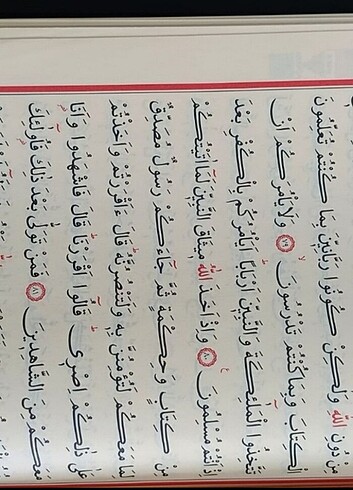 مِنْ دُونِ اللّٰهِ وَلٰكِنْ كُونُوا رَبَّانِيّ۪نَ بِمَا كُنْتُمْ تُعَلِّمُونَ
الْكِتَابَ وَبِمَا كُنْتُمْ تَدْرُسُونَۙ ﴿٧٩﴾ وَلَا يَأْمُرَكُمْ اَنْ
تَتَّخِذُوا الْمَلٰٓئِكَةَ وَالنَّبِيّ۪نَ اَرْبَابًاۜ اَيَأْمُرُكُمْ بِالْكُفْرِ بَعْدَ
اِذْ اَنْتُمْ مُسْلِمُونَ۟ ﴿٨٠﴾ وَاِذْ اَخَذَ اللّٰهُ م۪يثَاقَ النَّبِيّ۪نَ لَمَٓا اٰتَيْتُكُمْ
مِنْ كِتَابٍ وَحِكْمَةٍ ثُمَّ جَٓاءَكُمْ رَسُولٌ مُصَدِّقٌ
لِمَا مَعَكُمْ لَتُؤْمِنُنَّ بِه۪ وَلَتَنْصُرُنَّهُۜ قَالَ ءَاَقْرَرْتُمْ وَاَخَذْتُمْ
عَلٰى ذٰلِكُمْ اِصْر۪يۜ قَالُٓوا اَقْرَرْنَاۜ قَالَ فَاشْهَدُوا وَاَنَا۬
مَعَكُمْ مِنَ الشَّاهِد۪ينَ ﴿٨١﴾ فَمَنْ تَوَلّٰى بَعْدَ ذٰلِكَ فَاُو۬لٰٓئِكَ